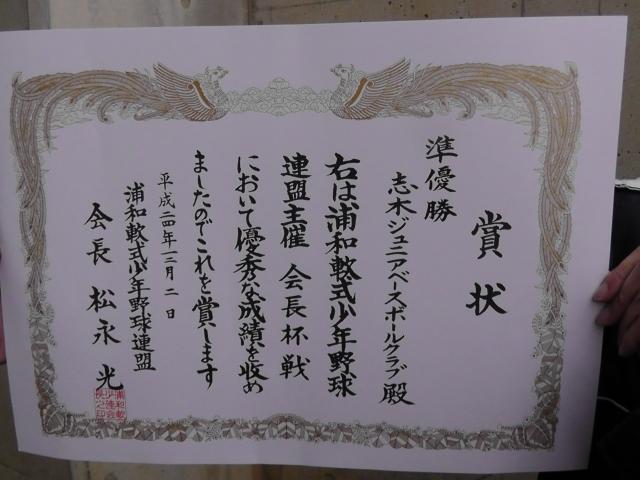 賞状
準優勝
志木ジュニアベースボールクラブ殿
右は浦和軟式少年野球
連盟主催 会長杯戦
において優秀な成績を収め
ましたのでこれを賞します
平成二四年一二月二日
浦和軟式少年野球連盟
会長 松永光